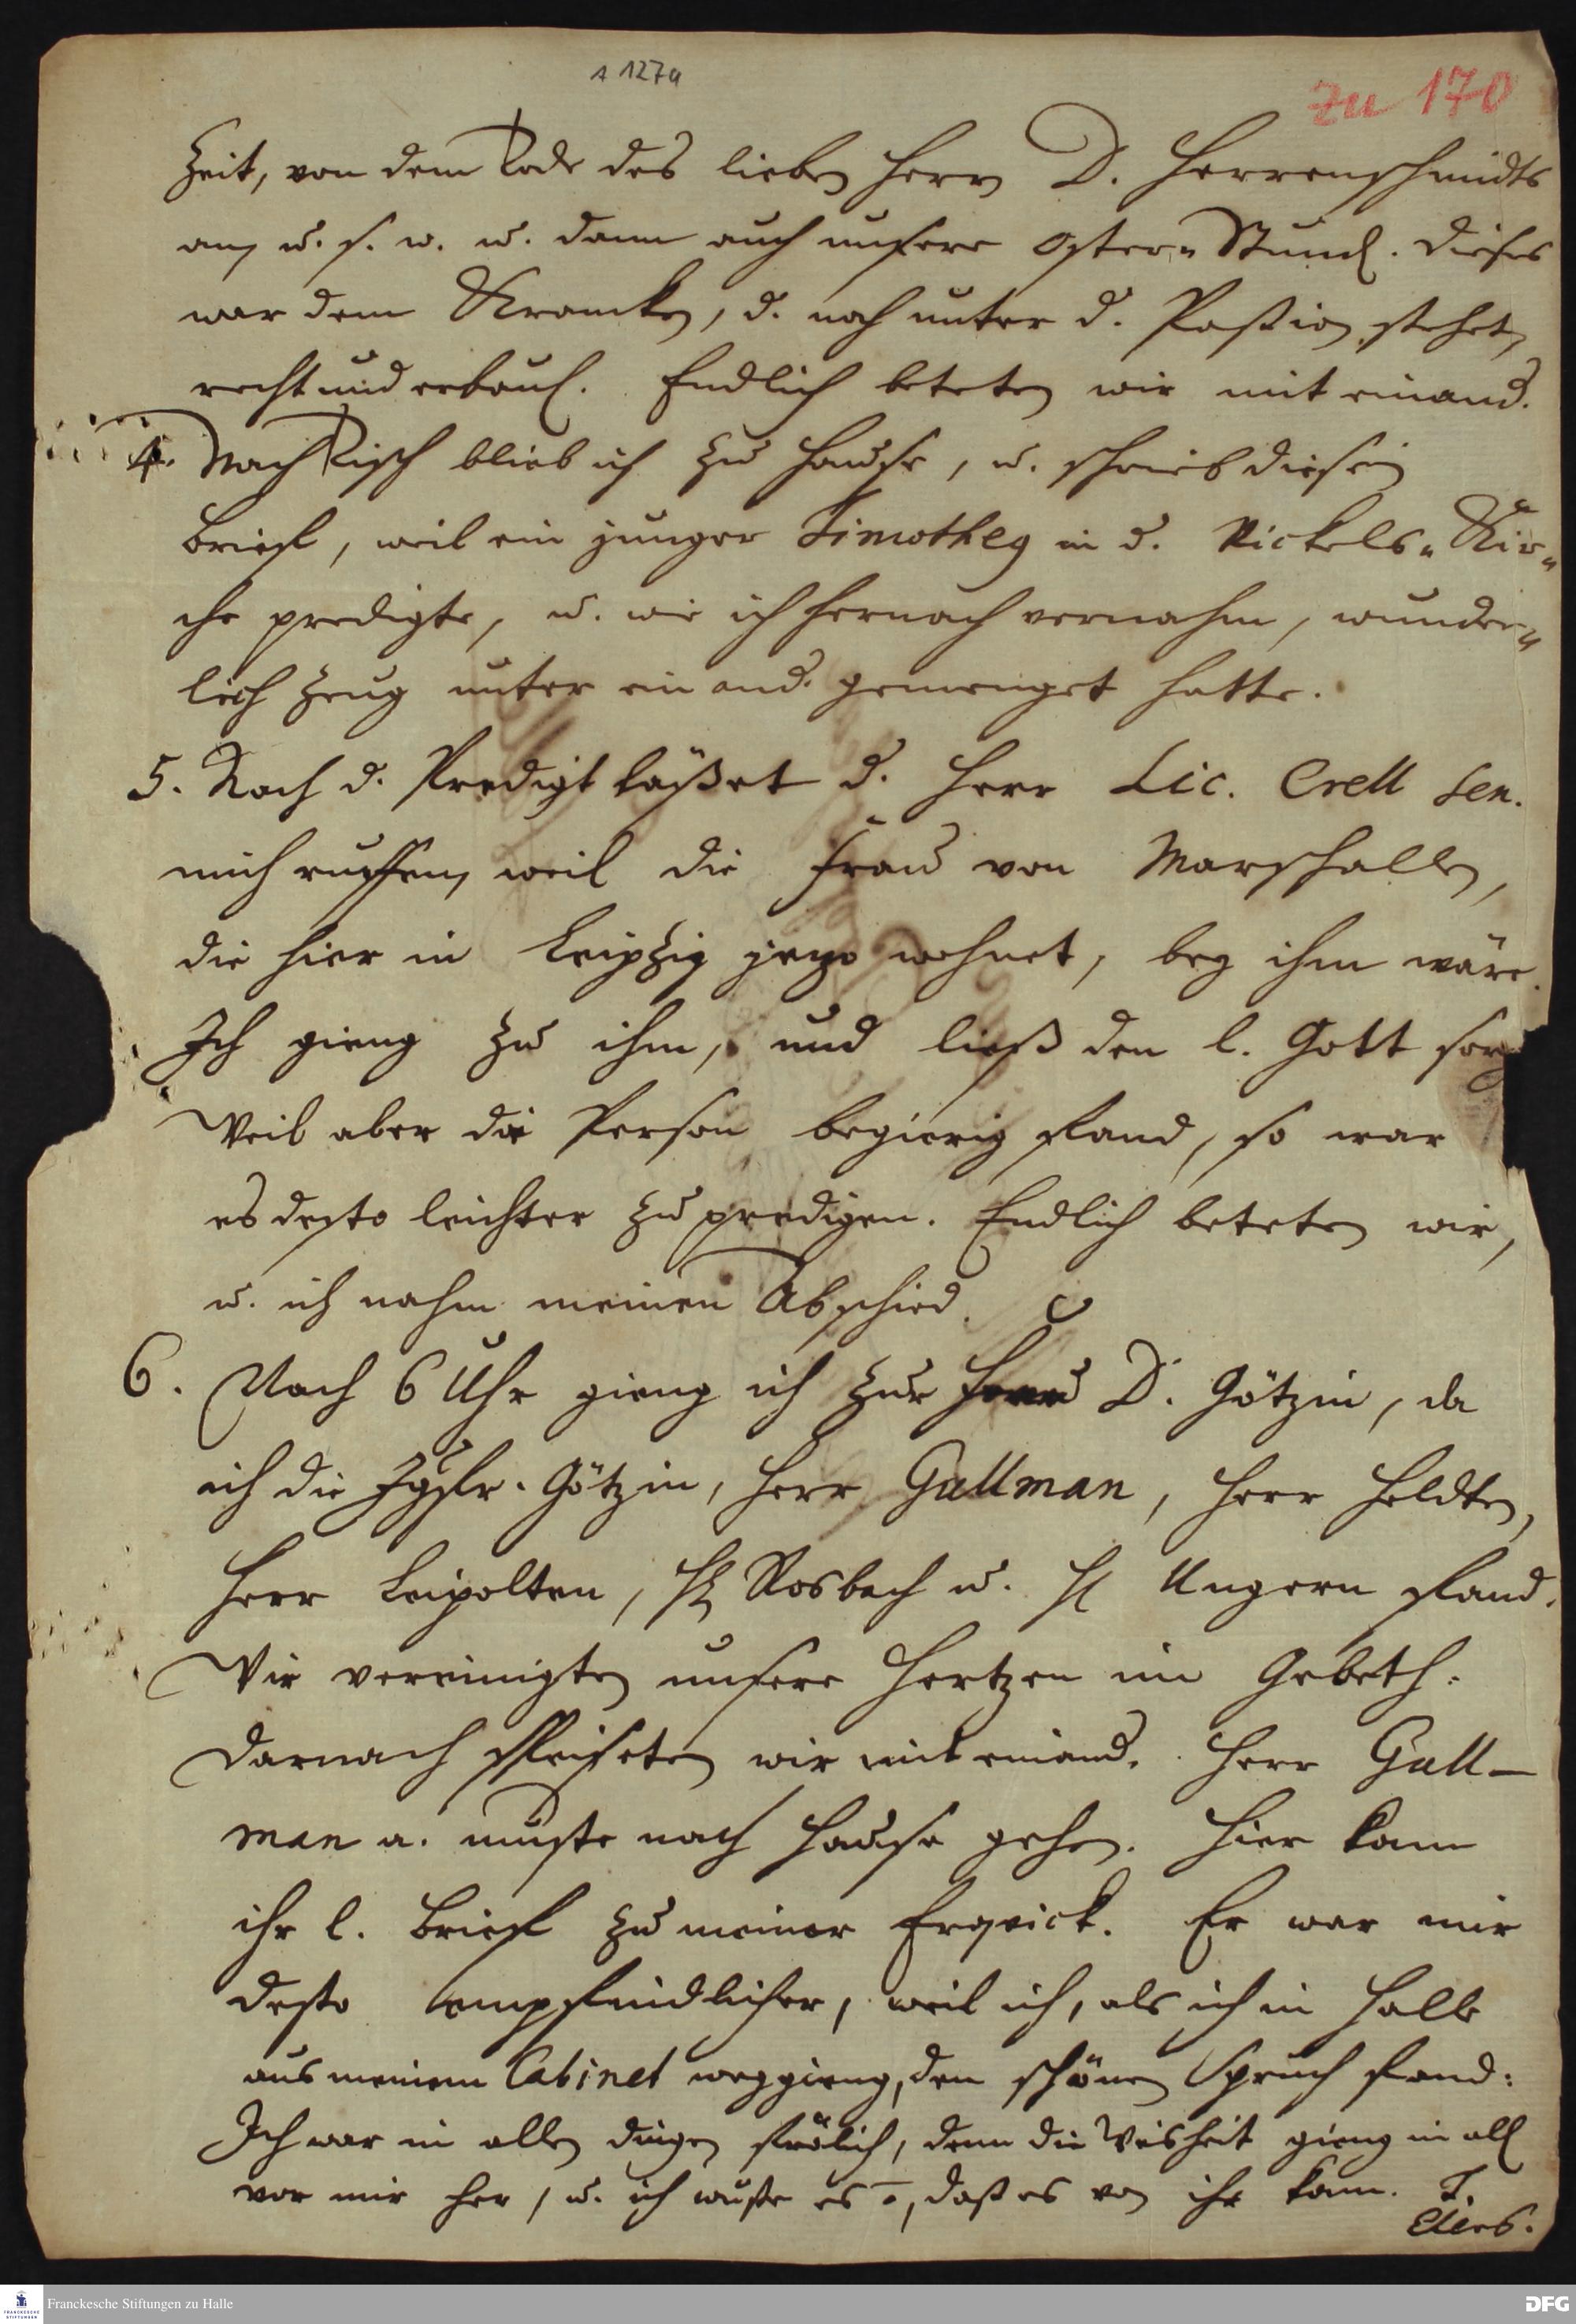 1 127a
zu 170
Zeit, von dem Tode des lieben Herrn D. Herrenschmidts
an, u. s. w. u. dann auch unsere Oster-Stund. Dieses
war dem Krancken, d. noch unter d. Paßion stehet,
recht und erbaul. Endlich beteten wir mit einand.
4. Nach Tisch blieb ich zu Hause, u. schrieb diesen
Brief, weil ein junger Timotheg in d. Nickels-Kir-
che predigte, u. wie ich hernach vernahm, wunder-
lich Zeug unter einand. gemenget hatte.
5. Nach d. Predigt läßet d. Herr Lic. Crell Sen.
mich ruffen, weil die Frau von Marschallen,
die hier in Leipzig jezo wohnet, bey ihm wäre.
Ich gieng zu ihm, und ließ den l. Gott sorg
Weil aber die Person begierig fand, so war
es desto leichter zu predigen. Endlich beteten wir,
u. ich nahm meinen Abschied.
6. Nach 6 Uhr gieng ich zur Frau D. Götzin, da
ich die Jgfr. Götzin, Herr Gullman, Herr Heldten,
Herr Leipolten, H. Rosbach u. H. Ungern fand.
Wir vereinigten unsere Hertzen im Gebeth.
Darnach speiseten wir mit einand. Herr Gull-
man a. muste nach Hause gehen. Hier kam
ihr l. Brief zu meiner Erqvick. Er war mir
desto empfindlicher, weil ich, als ich in Halle
aus meinem Cabinet weggieng, den schönen Spruch fand:
Ich war in allen dingen frölich, denn die Weisheit gieng in all
vor mir her, u. ich wuste es o, daß es von ihr kam. T.
Elers.
Franckesche Stiftungen zu Halle
DFG